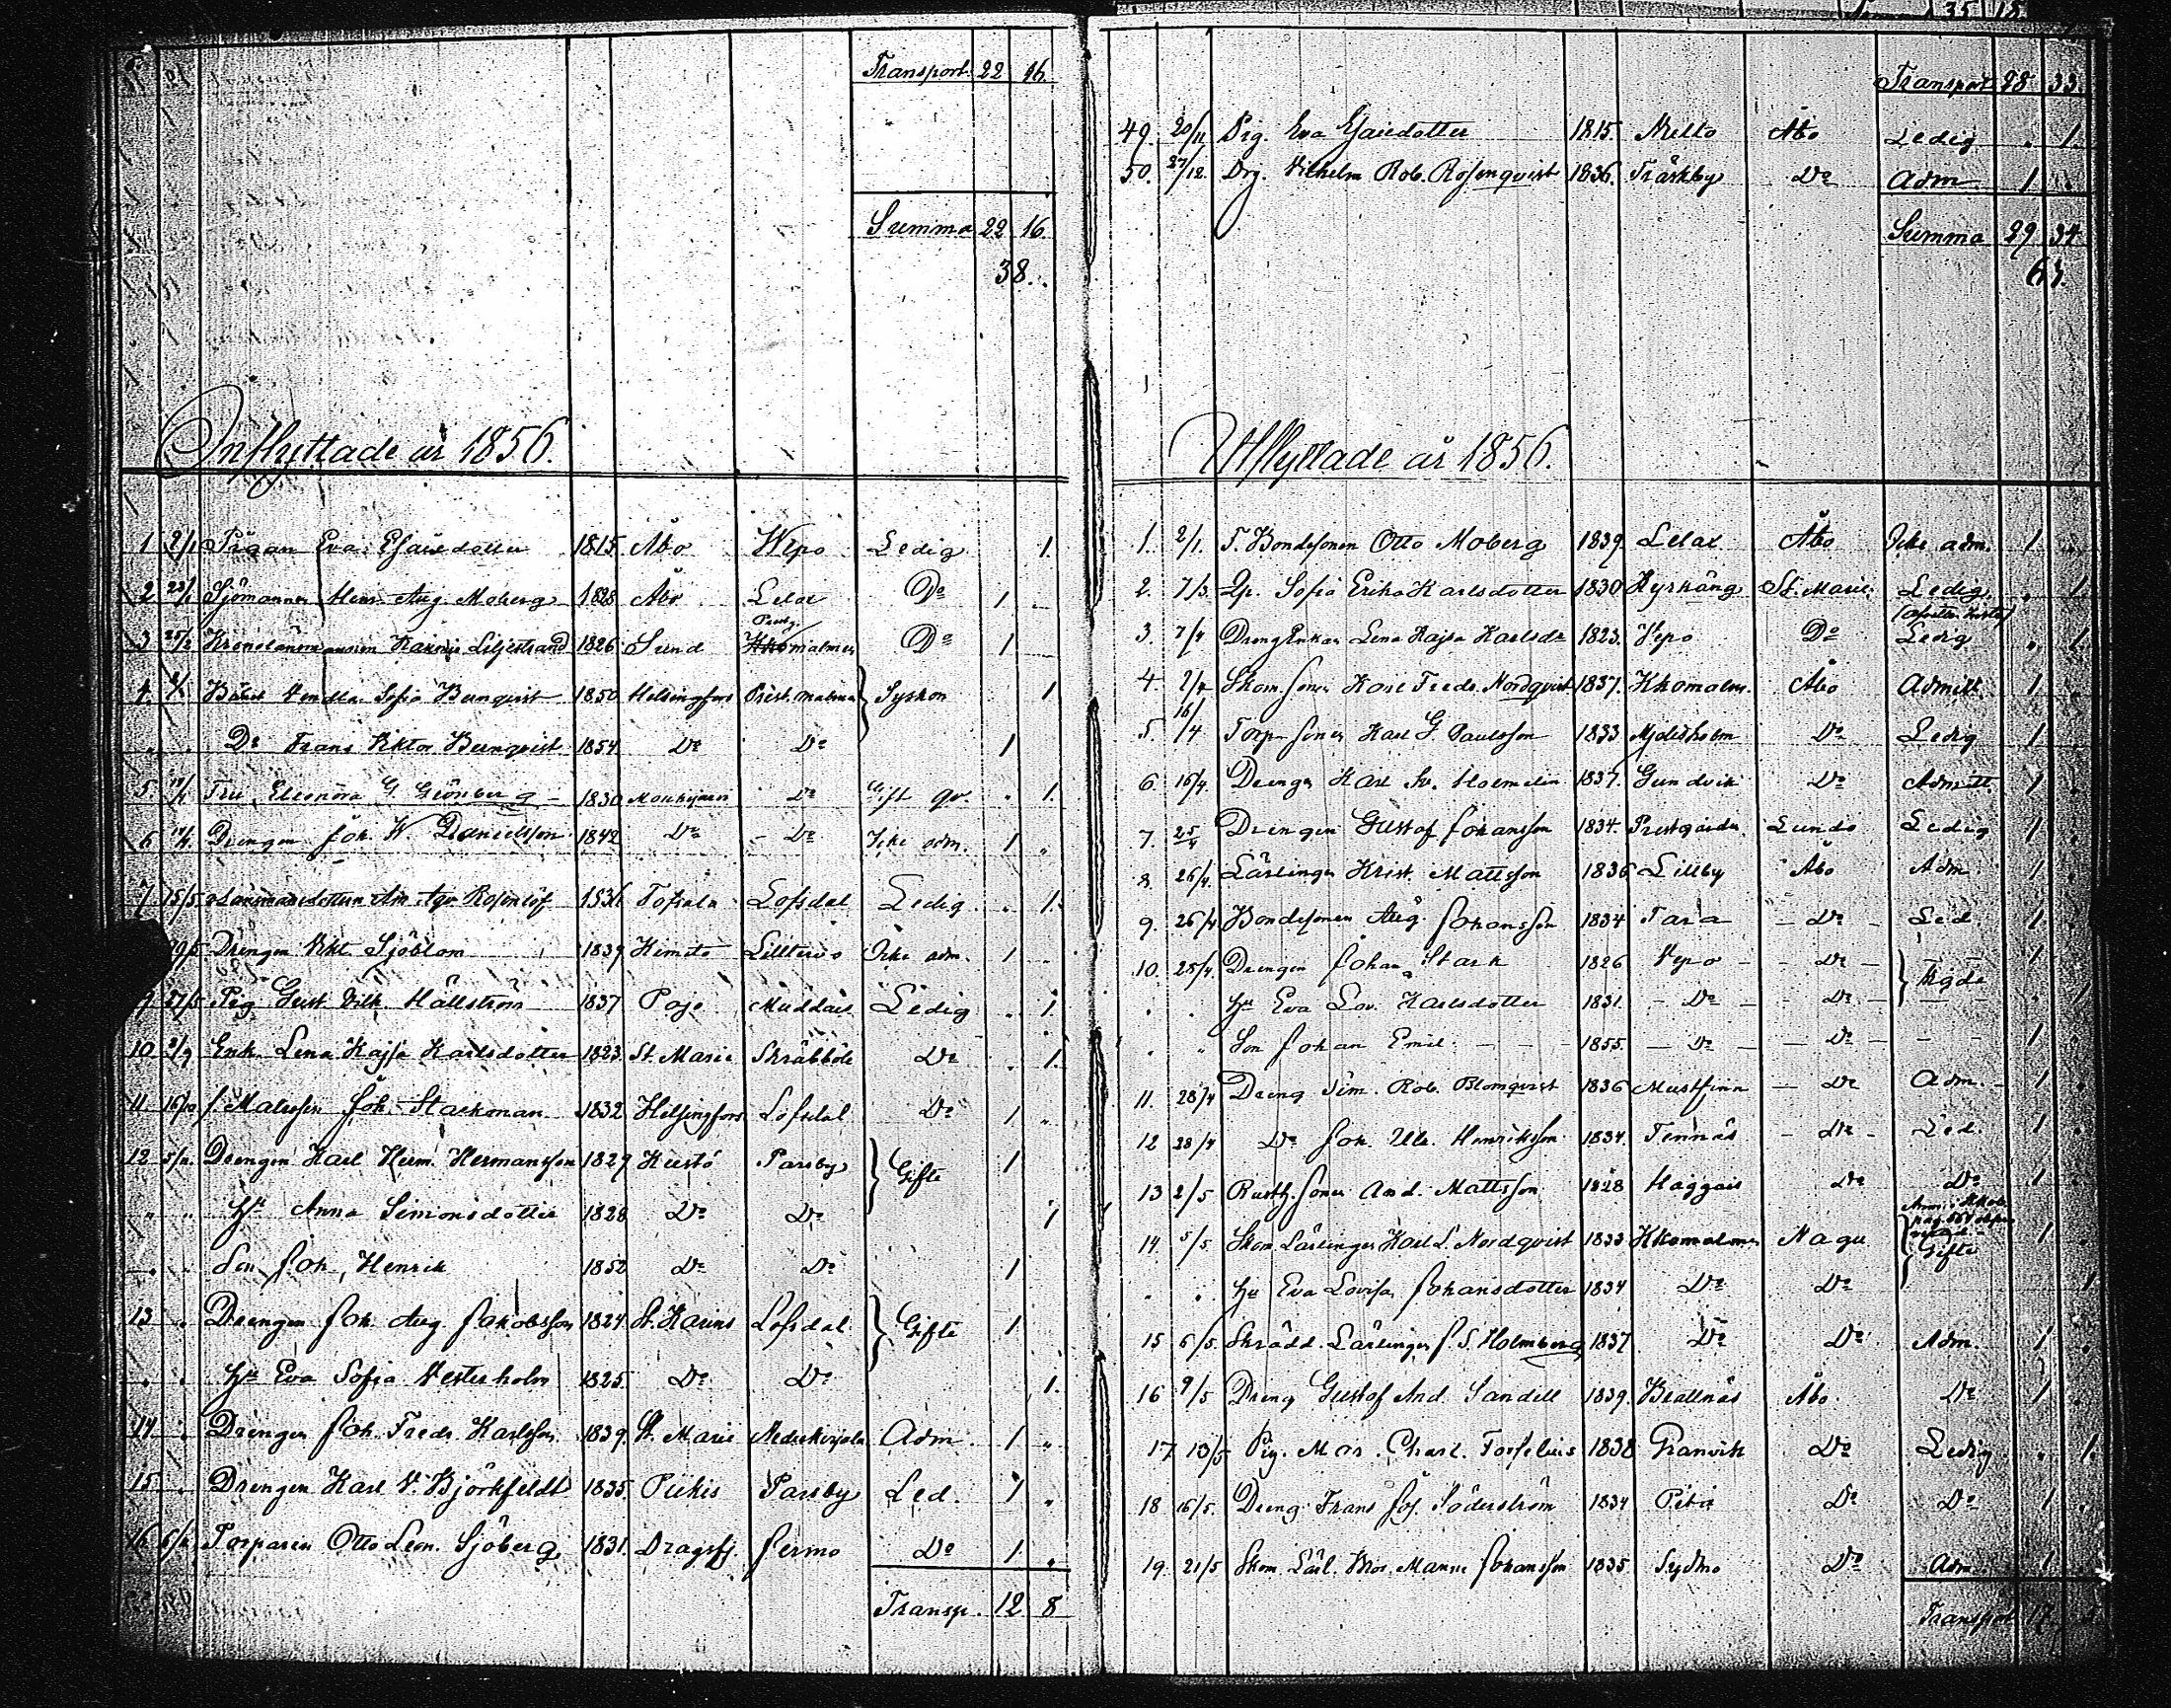 Transport 22 16.
Summa 22 16.
38.
Inflyttade år 1856.
1 2/1 Pigan Eva Esaiedotter 1815. Åbo Wepo Ledig 1.
2 23/1 Sjömannen Henr. Aug. Moberg 1828 Åbo Lelax Do 1
3 25/2 Liljestrand 1826 Sund malmen Do 1
4. Sofia Bernqvist 1850 Helsingfors Prest. malmen Syskon 1
" " Do Frans Viktor Bernqvist 1854 Do Do 1
5. Fru Eleonora G. Grönberg 1830 Do Gift qv. 1.
6 Drengen Joh. W. Danielsson 1842 Do Do Icke adm. 1 "
7 15/5 Rosenlöf 1836 Tofsala Lofsdal Ledig 1.
Drengen Vikt. Sjöblom 1839 Kimito Lilltervo Icke adm. 1
9 27/5 Pig. Gust. Vilh. Hällström 1837 Pojo Muddais Ledig 1.
10 2/9 Enk. Lena Kajsa Karlsdotter 1823. St. Marie Skräbböle Do 1.
11. 16/10 f. Matrosen Joh. Stackman 1832 Helsingfors Lofsdal Do 1 "
12 5/11 Drengen Karl Herm. Hermansson 1829 Kustö Parsby Gifte 1
" " Hu Anna Simonsdotter 1828 Do Do 1
" " Son Joh. Henrik 1852 Do Do 1
13 " Drengen Joh. Aug. Jakobsson 1824 St. Karins Lofsdal Gifte 1
" " Hu Eva Sofia Vesterholm 1825. Do Do 1.
14 " Drengen Joh. Fredr. Karlsson 1839. St. Marie Nederkirjala Adm. 1 "
15. " Drengen Karl V. Björkfeldt 1835. Piikis Parsby Led. 1 "
16 Torparen Otto Leon. Sjöberg 1831. Dragsfj. Jermo Do 1 "
Transp. 12 8
Transport 28 33.
49. 20/11 Pig. Eva Esaiedotter 1815. Mielto Åbo Ledig 1.
50. 27/12. Drg. Vilhelm Rob. Rosenqvist 1836. Träskby Do Adm 1
Summa 29 34
63.
Utflyttade år 1856.
1. 2/1. T. Bondesonen Otto Moberg 1839 Lelax Åbo Icke adm. 1
2. 7/3. Qp. Sofia Erika Karlsdotter 1830 Kyrkäng St. Marie Ledig 1
3. 7/4 Drengenkan Lena Kajsa Karlsdr 1823. Vepo Do Ledig 1.
4. 2/4 Skom. sonen Karl Fredr. Nordqvist 1837. Kkomalm. Åbo Admitt 1
5. 16/4 Torp. sonen Karl G. Paulsson 1833 Mjelisholm Do Ledig 1
6. 16/4. Drengen Karl Holmelin 1837. Gundvik Do Admitt. 1
7. 25/4 Drengen Gustaf Johansson 1834. Prestgården Lundo Ledig 1
8. 26/4. Lärlingen Krist. Mattsson 1836 Lillby Åbo Adm. 1
9. 26/4 Bondesonen Aug. Johansson 1834 Tara Do Led 1
10. 28/4. Drengen Johan Stark 1826 Vepo Do Bgde 1
" " Hu Eva Lov. Karlsdotter 1831. Do Do 1
" " Son Johan Emil 1855. Do Do 1
11. 28/4 Dreng Sim. Rob. Blomqvist 1836 Mustfinn Do Adm. 1
12 28/4 Do Joh. Ulr. Henriksson 1834. Tennäs Do Led. 1
13 2/5 Rusth. sonen And. Mattsson 1828 Haggais Do Do 1
14. 5/5 Skom. Lärlingen Karl L. Nordqvist 1833 Kkomalmen Nagu Gifte 1
" " Hu Eva Lovisa Johansdotter 1834 Do Do 1
15 6/5. Skrädd. Lärlingen J. S. Holmberg 1837 Do Do Adm. 1
16 9/5 Dreng Gustaf And. Sandell 1839. Brattnäs Åbo Do 1
17. 13/5 Pig. Mar. Charl. Forselius 1838 Granvik Do Ledig 1.
18 16/5. Dreng Frans Jos. Söderström 1834 Do Do 1
19. 21/5 Skom. Lärl. Johansson 1835. Sydmo Do Adm 1
Transport 17